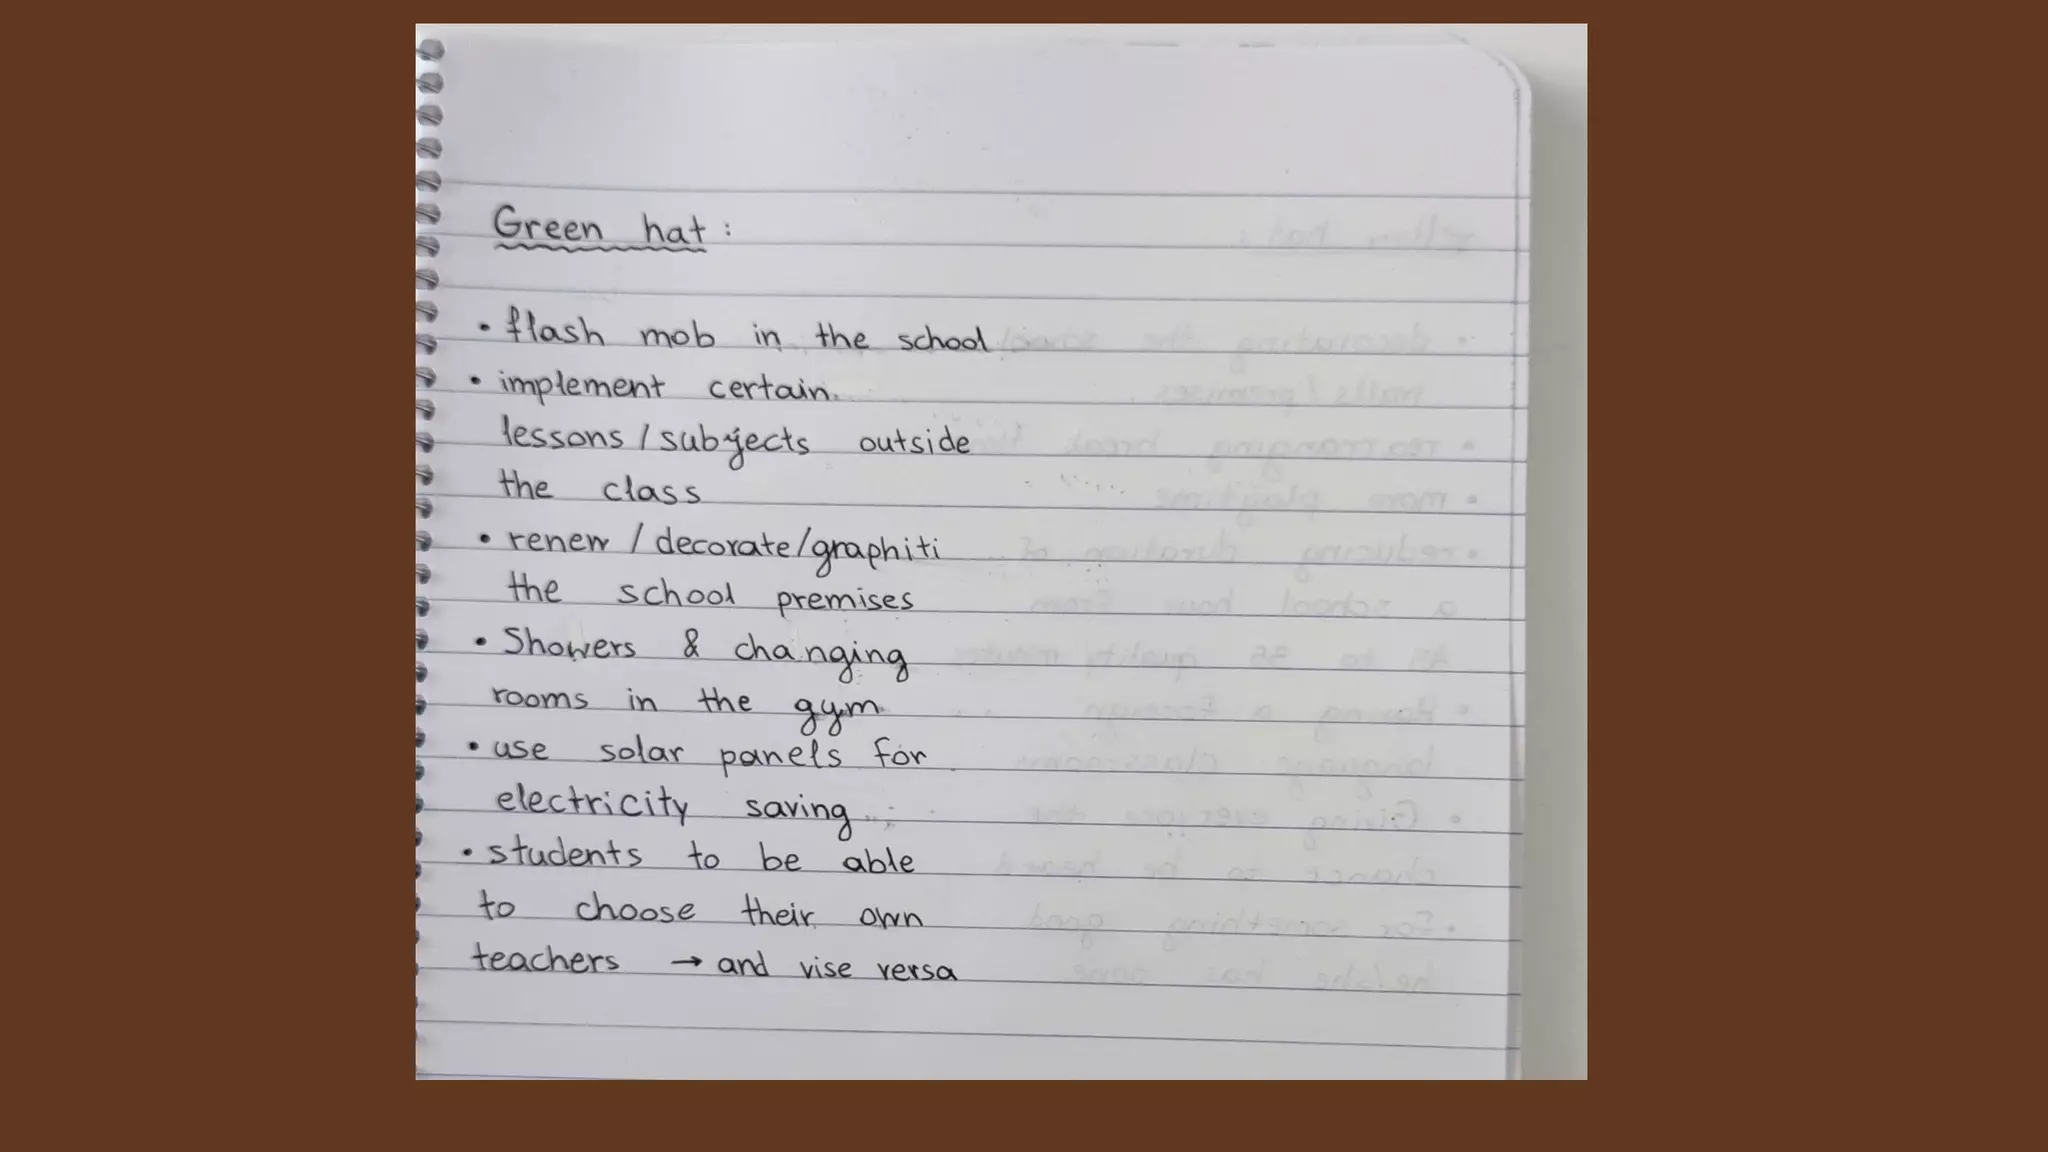 Green hat :
• flash mob in the school
• implement certain
lessons / subjects outside
the class
• renew / decorate/graphiti
the school premises
• Showers & changing
rooms in the gym
• use solar panels for
electricity saving
• students to be able
to choose their own
teachers → and vise versa